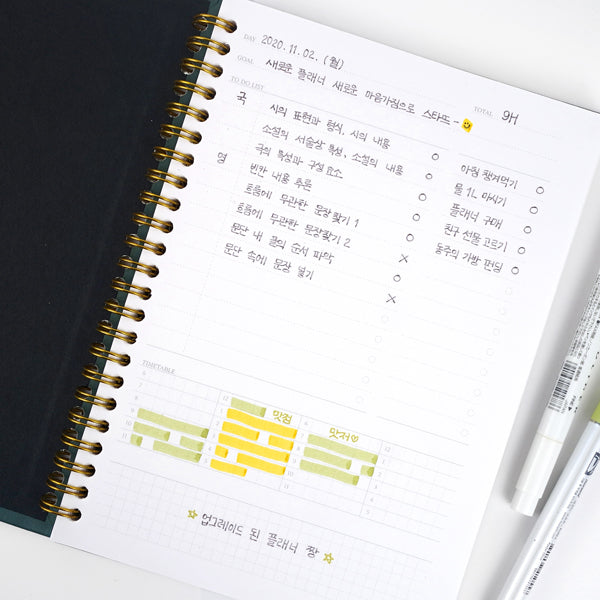 DAY 2020.11.02.(월)
GOAL 새로운 플래너 새로운 마음가짐으로 스타뜨~
TOTAL 9H
TO DO LIST
국 시의 표현과 형식, 시의 내용
소설의 서술상 특성, 소설의 내용
극의 특성과 구성 요소
영 빈칸 내용 추론
흐름에 무관한 문장 찾기 1
흐름에 무관한 문장 찾기 2
문단 내 글의 순서 파악
문단 속에 문장 넣기
아침 챙겨먹기
물 1L 마시기
플래너 구매
친구 선물 고르기
동주의 가방 펀딩
TIMETABLE
맛점
맛저♡
☆업그레이드 된 플래너 짱☆